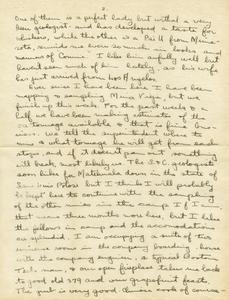 2.
One of them is a perfect lady but withal a very
keen geologist - and has developed a taste for
whiskers, while the other is a Phi U from Minne-
sota, reminds me even so much in looks and
manner of Connie. I like him awfully well but
haven't seen much of him lately as his wife
has just arrived from Los Angeles.
Ever since I have been here I have been
mapping a sampling Mina Vieja, but we
finish up this week. For the past week &
half we have been making estimates of the
ore tonnage available &
We tell the superintendent where to
mine & what tonnage he will get from each
stope and if it doesn't pan out something
will break most likely us. The
soon hikes for Matehuala down in the state of
San Luis Potosi but I think I will probably
be kept here to continue with the sampling
of the other mines in the camp. If I
that means three months more here, but I like
the fellows in camp and the accommodations
are splendid. I am occupying a suite of two
immense rooms in the company boarding house
with the company engineer, a typical Boston
Tech. man, & our open fireplace takes me back
to good old 379 and our grapefruit feasts.
The grub is very good. Chinese cook of course -